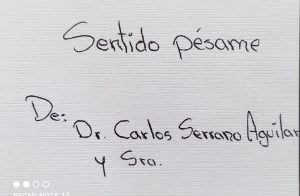 Sentido pésame
De:
Dr. Carlos Serrano Aguilar
y Sra.